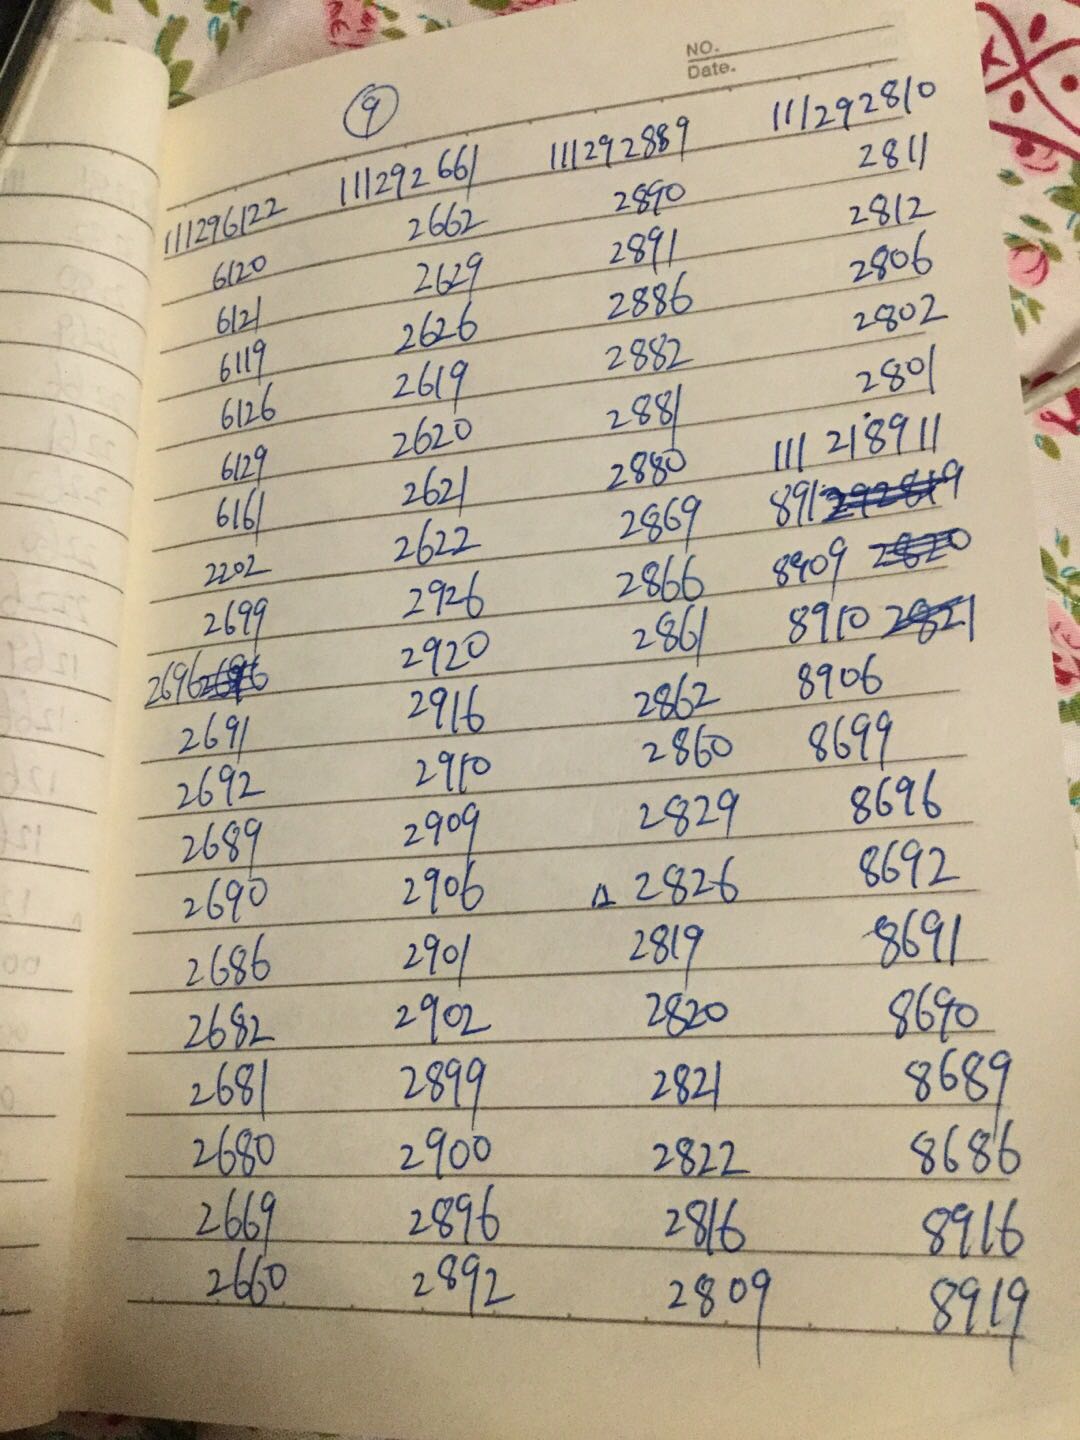 NO.
Date.
9
111296122 111292661 111292889 111292810
6120 2662 2890 2811
6121 2629 2891 2812
6119 2626 2886 2806
6126 2619 2882 2802
6129 2620 2881 2801
6161 2621 2880 111 218911
2202 2622 2869 891 292819
2699 2926 2866 8909 2820
2696 2696 2920 2861 8910 2821
2691 2916 2862 8906
2692 2910 2860 8699
2689 2909 2829 8696
2690 2906 Δ 2826 8692
2686 2901 2819 8691
2682 2902 2820 8690
2681 2899 2821 8689
2680 2900 2822 8686
2669 2896 2816 8916
2660 2892 2809 8919